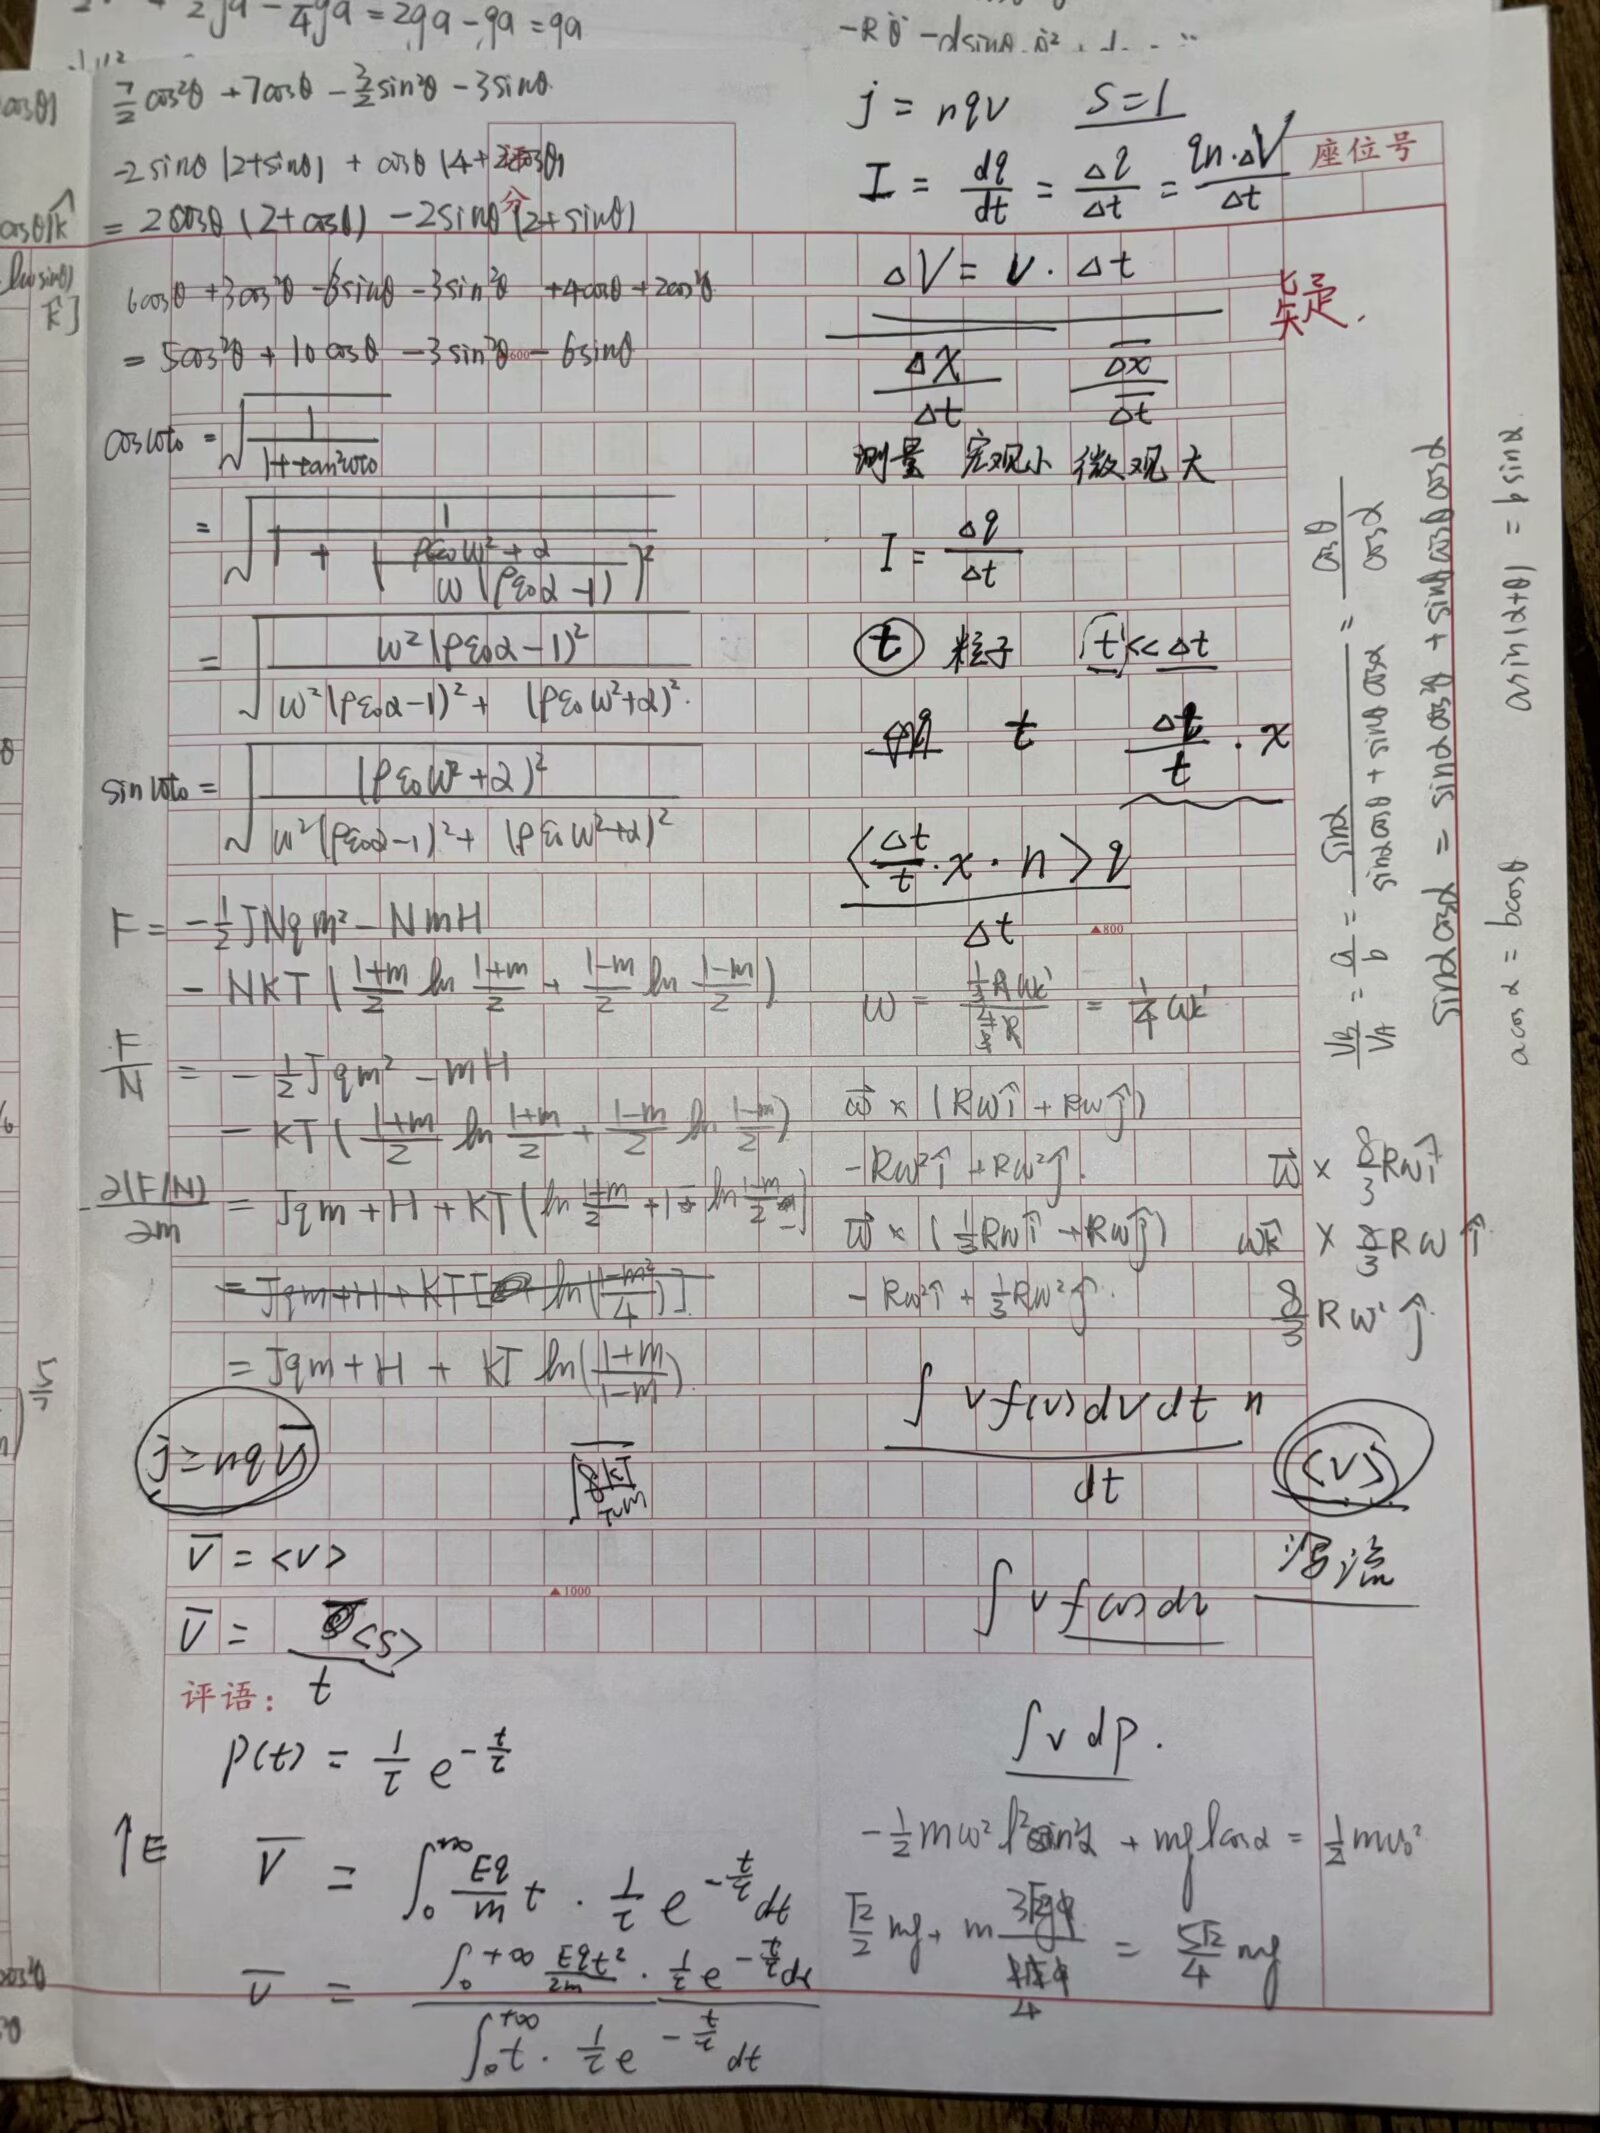 7/2 cos²θ + 7cosθ - 3/2 sin²θ - 3sinθ
-2sinθ(2+sinθ) + cosθ(4+2cosθ)
= 2cosθ(2+cosθ) - 2sinθ(2+sinθ)
6cosθ + 3cos²θ - 6sinθ - 3sin²θ + 4cosθ + 2cos²θ
= 5cos²θ + 10cosθ - 3sin²θ - 6sinθ
600
cosωt₀ = √(1/(1+tan²ωt₀))
= √(1/(1+((ρε₀ω²+α)/(ω(ρε₀α-1)))²))
= √(ω²(ρε₀α-1)²/(ω²(ρε₀α-1)²+(ρε₀ω²+α)²))
sinωt₀ = √((ρε₀ω²+α)²/(ω²(ρε₀α-1)²+(ρε₀ω²+α)²))
F = -1/2 JNqm² - NmH
- NKT(1+m/2 ln 1+m/2 + 1-m/2 ln 1-m/2)
F/N = -1/2 Jqm² - mH
- KT(1+m/2 ln 1+m/2 + 1-m/2 ln 1-m/2)
-∂(F/N)/∂m = Jqm + H + KT(ln 1+m/2 + 1 - ln 1-m/2
= Jqm+H+KT[ ln(1-m²/4)]
= Jqm + H + KT ln(1+m/1-m)
j = nqv̅
v̅ = <v>
v̅ = <s>/t
▲1000
评语:
P(t) = 1/τ e^(-t/τ)
↑E
v̅ = ∫₀^+∞ Eq/m t · 1/τ e^(-t/τ) dt
v̅ = ∫₀^+∞ Eqt²/2m · 1/τ e^(-t/τ) dt / ∫₀^+∞ t · 1/τ e^(-t/τ) dt
j = nqv S=1
座位号
I = dq/dt = Δq/Δt = qn·ΔV/Δt
ΔV = v·Δt
疑.
Δx/Δt Δx/Δt
测量 宏观小 微观大
I = Δq/Δt
t 粒子 t<<Δt
t Δt/t · x
<Δt/t · x · n>q
Δt
▲800
ω = = 1/4 ωk'
ω⃗ × (Rωî + Rωĵ)
-Rω²î + Rω²ĵ.
ω⃗ × (1/3 Rωî + Rωĵ)
-Rω²î + 1/3 Rω²ĵ.
ω⃗ × 8/3 Rωî
ωk̂ × 8/3 Rωî
8/3 Rω²ĵ
∫v f(v) dv dt n
dt
<v>
∫v f(v) dv
∫v dp.
-1/2 mω²l²sin²α + mglcosα = 1/2 mv₀²
√2/2 mg + m = 5√2/4 mg
v_B/v_A = a/b = sinα/(sinαcosθ + sinθcosα) = cosθ/cosα
sinαcosα = sinαcos²θ + sinθcosθcosα
acosα = bcosθ asin(α+θ) = bsinα